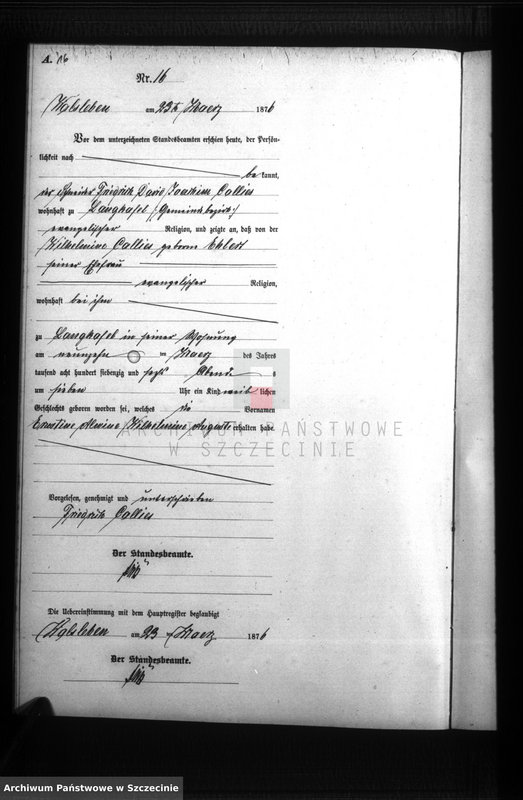 A. 16
Nr. 16
Walsleben am 23ten Maerz 1876
Vor dem unterzeichneten Standesbeamten erschien heute, der Persön-
lichkeit nach
be kannt,
der Schneider Friedrich David Joachim Callies
wohnhaft zu Langhafel /:Gemeindebezirk:/
evangelischer Religion, und zeigte an, daß von der
Wilhelmine Callies geboren Ehlert
seiner Ehefrau
evangelischer Religion,
wohnhaft bei ihm
zu Langhafel in seiner Wohnung
am neunzehn ten Maerz des Jahres
tausend acht hundert siebenzig und sechs Abends
um sieben Uhr ein Kind weib lichen
Geschlechts geboren worden sei, welches die Vornamen
Ernestine Wilhelmine Auguste erhalten habe.
Vorgelesen, genehmigt und unterschrieben
Friedrich Callies
Der Standesbeamte.
Die Uebereinstimmung mit dem Hauptregister beglaubigt
Walsleben am 23 Maerz 1876
Der Standesbeamte.
ARCHIWUM PAŃSTWOWE
W SZCZECINIE
Archiwum Państwowe w Szczecinie